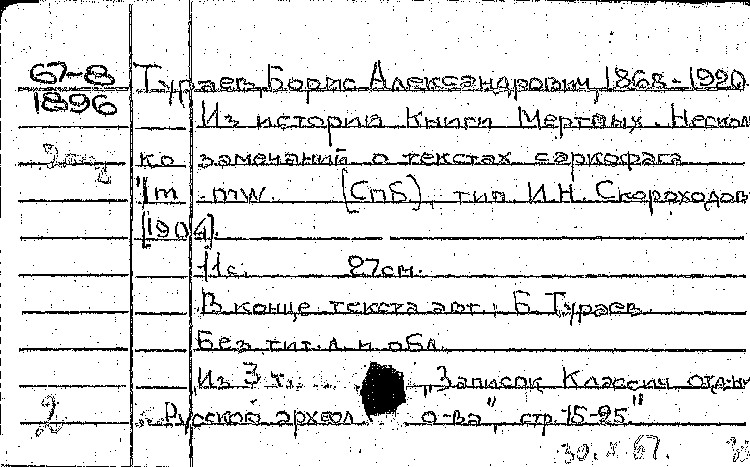 67-8 Тураев, Борис Александрович, 1868-1920.
1896
Из истории Книги Мертвых. Несколь
ко замечаний о текстах саркофага
"Im -mw. [СПБ], тип. И.Н. Скороходов
[1904].
11с. 27см.
В конце текста авт.: Б. Тураев.
Без тит. л. и обл.
Из 3 т. „Записок Классич. отд-ни
2 Русской археол. о-ва", стр. 15-25."
30.X 67.